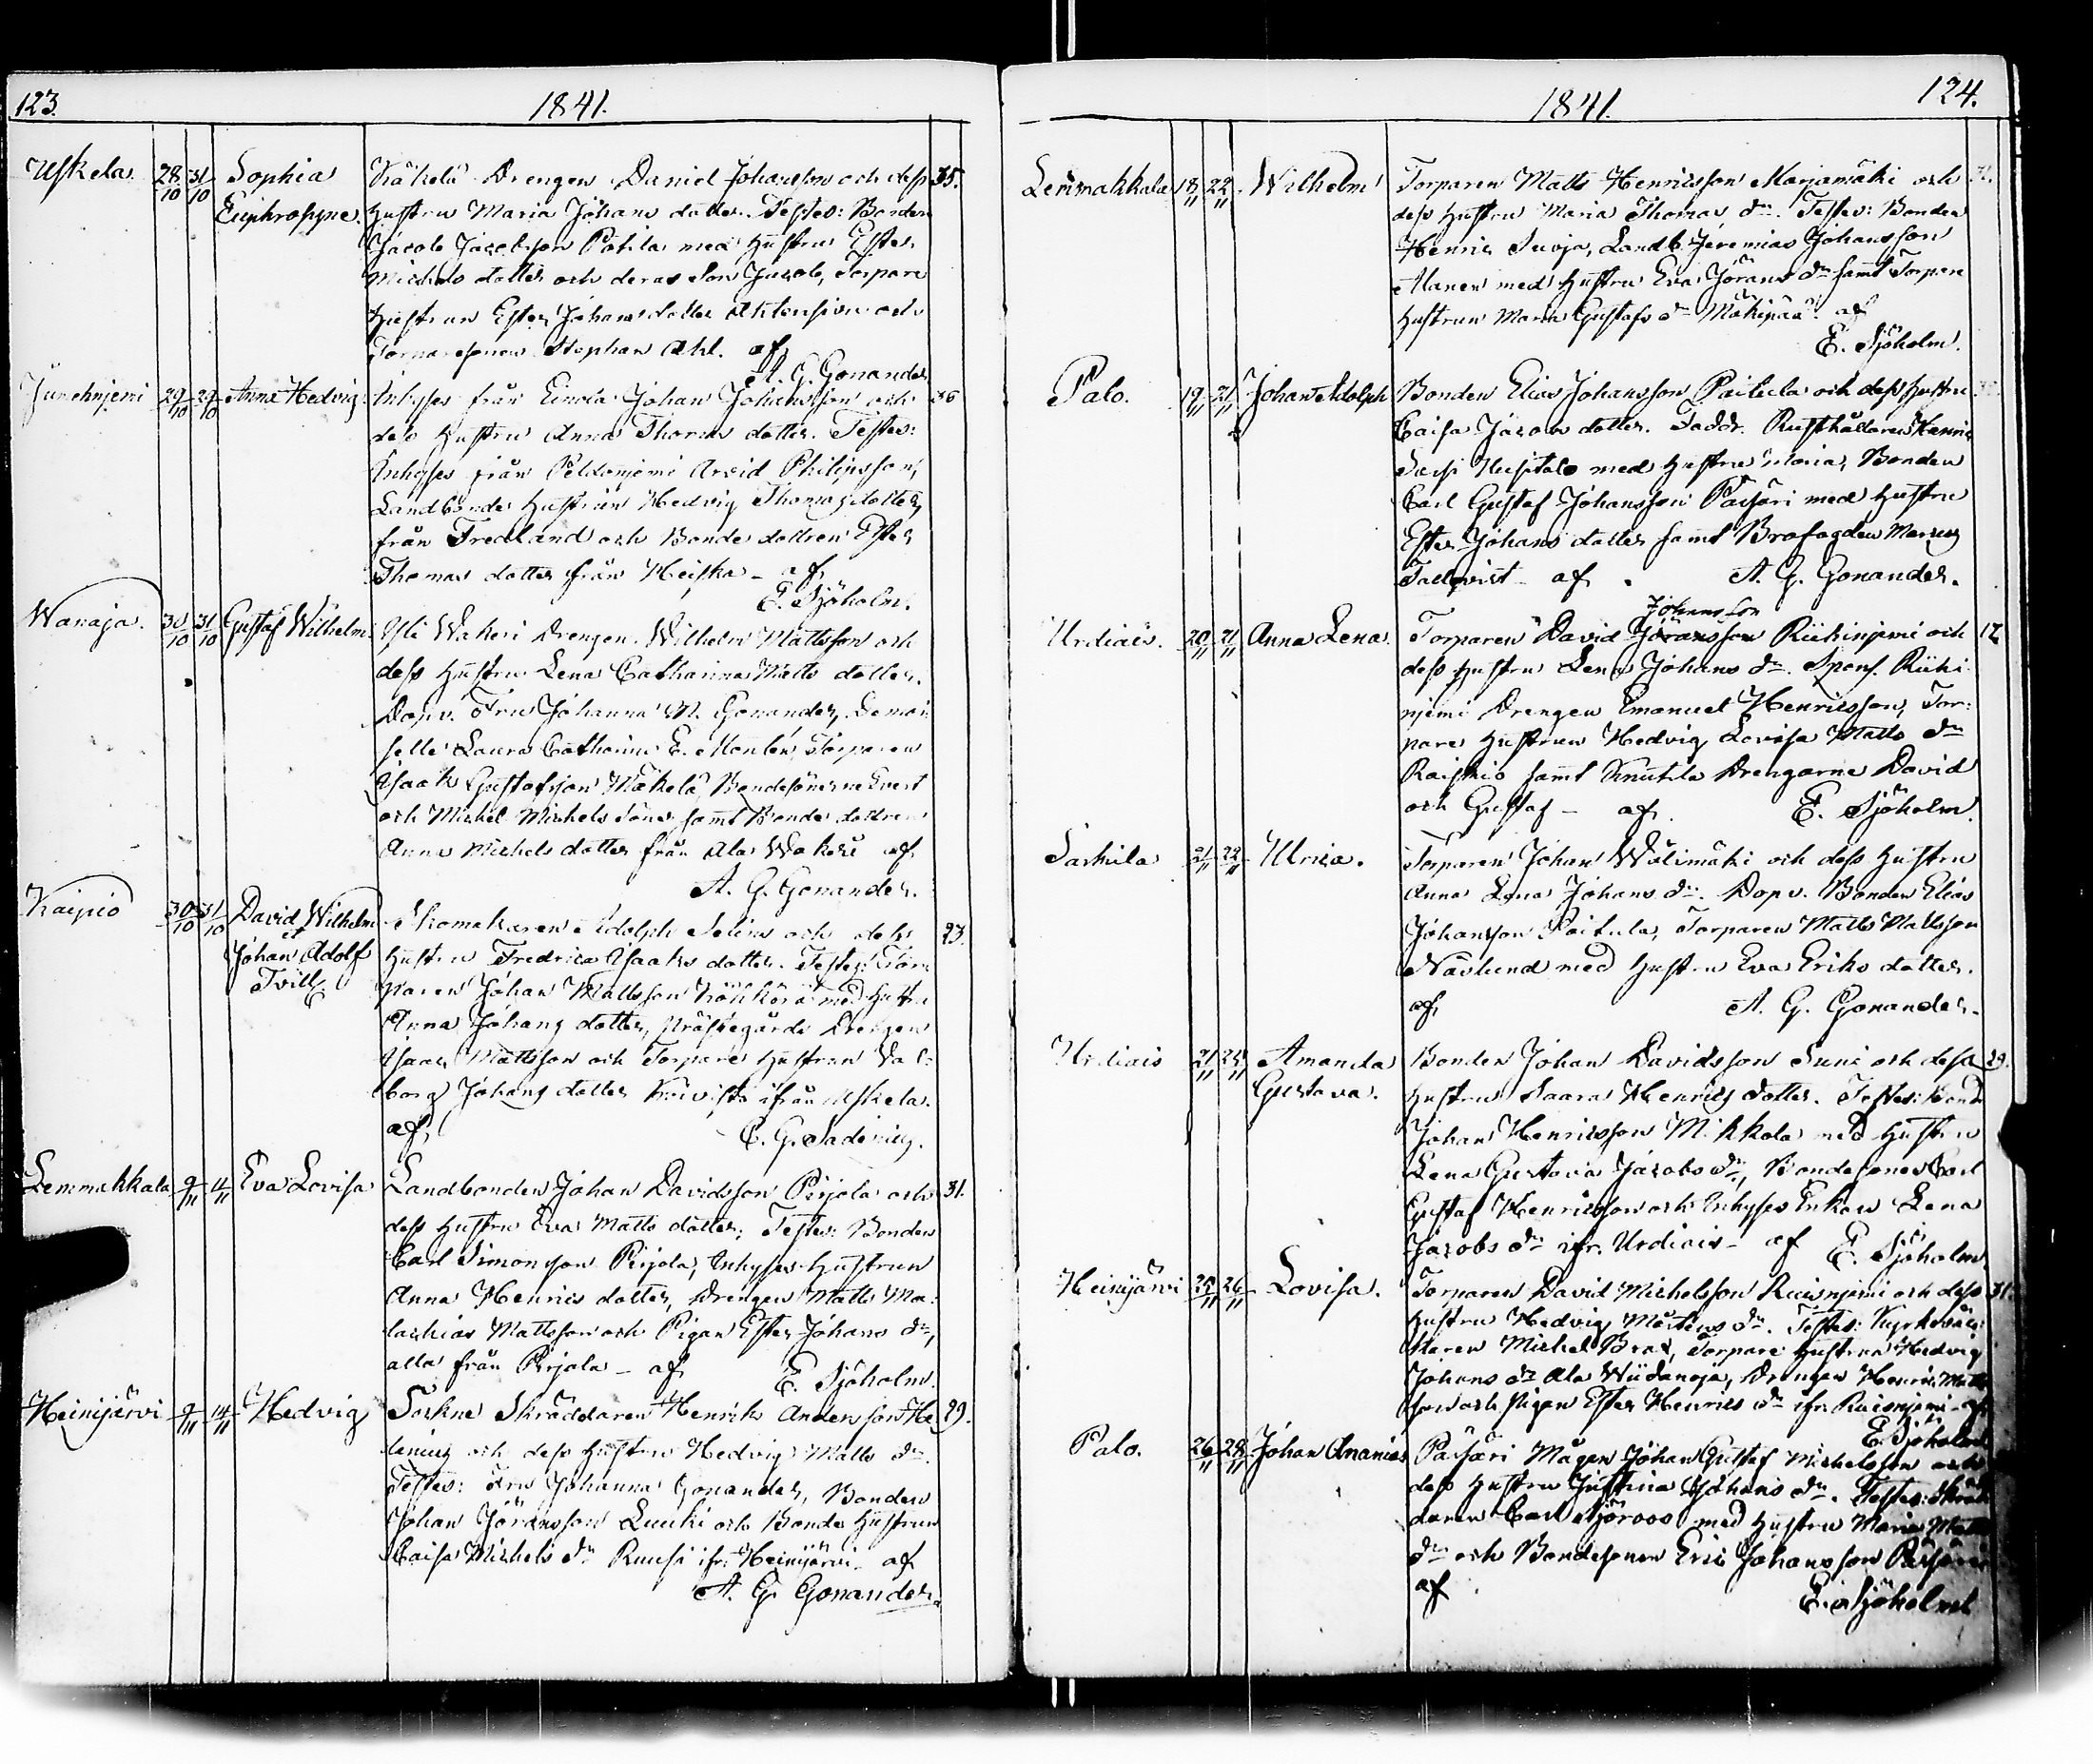 123. 1841.
Uskela. 28/10 31/10 Sophia Euphrosyne. Käkelä Drengen Daniel Johansson och dess 35.
hustru Maria Johans dotter. Testes: Bonden
Jacob Jacobsson Pätilä med hustru Ester
Michels dotter och deras Son Jacob, Torpare
hustrun Ester Johans dotter och
Stephan Ahl. af
A. G. Gonander
29/10 29/10 Anna Hedvig. Inhyses från Einola Johan Johansson och 36
dess hustru Anna Thomas dotter. Testes:
Inhyses från Peldonjemi Arvid Philipsson,
Landbonde hustrun Hedvig Thomas dotter
från Fredland och Bonde dottren Ester
Thomas dotter från Heiska - af
E. Sjöholm.
Wanaja. 30/10 31/10 Gustaf Wilhelm. Yli Wakeri Drengen Wilhelm Mattsson och
dess hustru Lena Catharina Matts dotter.
Dopv. Fru Johanna M. Gonander, Demoi-
selle Laura Catharina E. Torparen
Isaak Gustafsson Mäkelä, Bondesönerne Evert
och Michel Michels Söner samt Bonde dottren
Anna Michels dotter från Ala Wakeri af
A. G. Gonander.
Kaipio 30/10 31/10 David Wilhelm et Johan Adolf Tvill. Skomakaren Adolph Selin och dess 23.
hustru Fredrica Isaaks dotter. Testes: Tor-
paren Johan Mattsson med hustru
Anna Johans dotter, Prästegårds Drengen
Isaac Mattsson och Torpare hustrun Val-
borg Johans dotter Koivisto ifrån Uskela.
af
C. G. Sadenius.
Lemmakkala 9/11 14/11 Eva Lovisa Landbonden Johan Davidsson Pirjola och 31.
dess hustru Eva Matts dotter; Testes: Bonden
Carl Simonsson Pirjola, Inhyses hustrun
Anna Henrics dotter, Drengen Matts Ma-
lachias Mattsson och Pigan Ester Johans dr,
alla från Pirjola - af
E. Sjöholm.
Heinijärvi 9/11 14/11 Hedvig Sockne Skräddaren Henrik Andersson He- 29.
lenius och dess hustru Hedvig Matts dr.
Testes: Fru Johanna Gonander, Bonden
Johan Jöransson Luuki och Bonde hustrun
Caisa Michels dr Ruusi ifr. Heinijärvi af
A. G. Gonander.
1841. 124.
Lemmakkala 18/11 22/11 Wilhelm Torparen Matts Henricsson Marjamäki och
dess hustru Maria Thomas dr. Testes: Bonden
Henric Suoja, Landb. Jeremias Johansson
Alanen med hustru Eva Jörans dr samt Torpare
hustrun Maria Gustafs dr Mäkipää. af
E. Sjöholm.
Palo. 19/11 21/11 Johan Adolph Bonden Elias Johansson Paitula och dess hustru
Caisa Jacobs dotter. Faddr. Rusthållaren Henric
med hustru Maria, Bonden
Carl Gustaf Johansson Passari med hustru
Ester Johans dotter samt Brofogden Marcus
Tallqvist - af A. G. Gonander.
Urdiais. 20/11 21/11 Anna Lena. Torparen David Jöransson Johansson Riikinjemi och 12
dess hustru Lena Johans dr. Spons. Riiki-
njemi Drengen Emanuel Henricsson, Tor-
pare hustrun Hedvig Lovisa Matts dr
Raiskio samt Knutila Drengarne David
och Gustaf - af. E. Sjöholm.
21/11 22/11 Ulrica. Torparen Johan Wälimäki och dess hustru
Anna Lena Johans dr. Dopv. Bonden Elias
Johansson Paitula, Torparen Matts Mattsson
Näslund med hustru Eva Eriks dotter.
af A. G. Gonander.
Urdiais 21/11 Amanda Gustava. Bonden Johan Davidsson Suni och dess 29.
hustru Saara Henrics dotter. Testes: Bond.
Johan Henricsson Mikkola med hustru
Lena Gustava Jacobs dr, Bondesonen Carl
Gustaf Henricsson och Inhyses Enkan Lena
Jacobs dr ifr. Urdiais - af E. Sjöholm
Heinijärvi 25/11 26/11 Lovisa. Torparen David Michelsson Ruisnjemi och dess 31.
hustru Hedvig Mårtens dr. Testes: Kyrkowäk-
taren Michel Brax, Torpare hustrun Hedvig
Johans dr Ala Wiidanoja, Drengen Henric Matts
son och Pigan Ester Henrics dr ifr. Ruisnjemi af
E. Sjöholm
Palo. 26/11 28/11 Johan Ananias Passari Mågen Johan Gustaf Michelsson och
dess hustru Justina Johans dr. Testes: Skräd
daren Carl Sjöroos med hustru Maria Matts
dr och Bondesonen Eric Johansson Passari
af E. Sjöholm